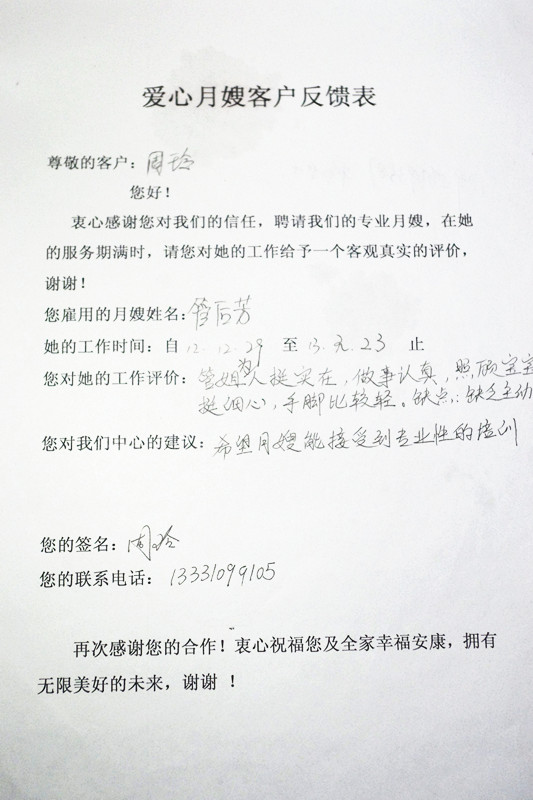 爱心月嫂客户反馈表
尊敬的客户：周玲
您好！
衷心感谢您对我们的信任，聘请我们的专业月嫂，在她
的服务期满时，请您对她的工作给予一个客观真实的评价，
谢谢！
您雇用的月嫂姓名：管后芳
她的工作时间：自12.12.29 至13.元.23 止
您对她的工作评价：管姐为人挺实在，做事认真，照顾宝宝
挺细心，手脚比较轻。缺点：缺乏主动
您对我们中心的建议：希望月嫂能接受到专业性的培训
您的签名：周玲
您的联系电话：13331099105
再次感谢您的合作！衷心祝福您及全家幸福安康，拥有
无限美好的未来，谢谢 ！